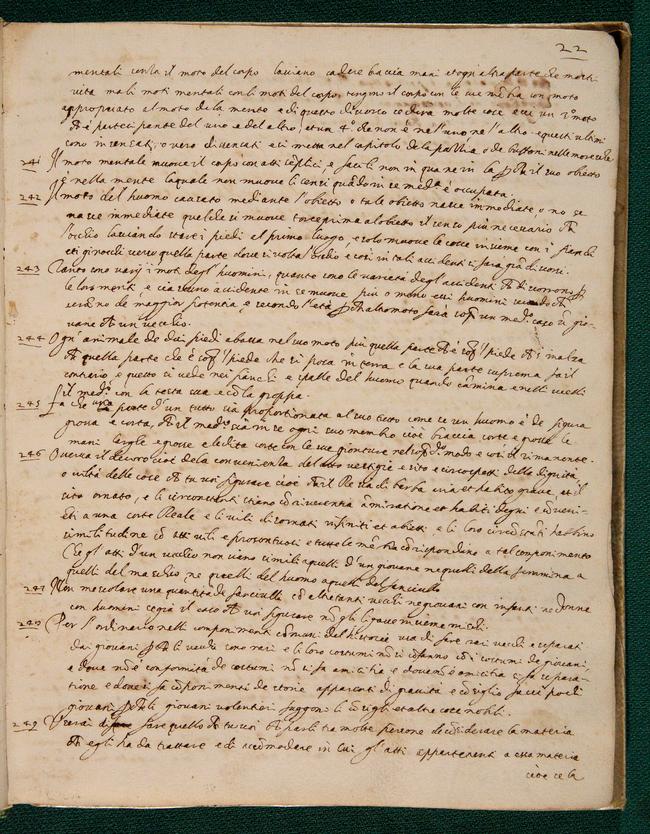 22
mentali senza il moto del corpo lasciano cadere braccia mani et ogni altra parte che mostri
vita ma li moti mentali con li moti del corpo tengono il corpo con le sue con moto
appropriato al moto della mente e di questo discorso si dirà molte cose e un 3 moto
participante del uno e del altro, et un 4º che non è ne l'uno ne l'altro e questi ultimi
sono insensati, o vero disensati e si mette nel capitolo della pazzia o de buffoni nelle moresche
241 Il moto mentale muove il corpo con atti semplici, e facili non in qua ne in la il suo obietto
è nella mente laquale non muove li sensi quando in se med.ª è occupata
242 Il moto del huomo causato mediante l'obietto o tale obietto nasce immediate, o no se
nasce immediate quel che si muove torce prima al obietto il senso più necessario
l'occhio lasciando stare i piedi al primo luogo, e solo muove le coscie insieme con i fianchi
et i ginocchi verso quella parte dove si volta l'occhio e così in tali accidenti si farà gran discorso
243 Tanto sono varij i moti degl'huomini, quanto sono le varietà degl'accidenti discorrono
le lor menti, e ciascuno accidente in se muove più o meno essi huomini secondo
seranno de maggior potentia, e secondo l'età altro moto farà un med.º caso un gio-
vane un vecchio.
244 Ogn'animale de doi piedi abassa nel suo moto più quella parte piede s'inalza
quella parte che è piede che si posa in terra e la sua parte suprema fa il
contrario e questo si vede nei fianchi e spalle del huomo quando camina e nelli uccelli
il med.º con la testa sua e con la groppa.
245 Fa che parte d'un tutto sia proportionata al suo tutto come se un huomo è de figura
grossa e corta, il med.º sia in se ogni suo membro cioè braccia corte e grosse le
mani larghe e grosse e le dita corte con le sue gionture nel modo e così il rimanente.
246 Osserva il decoro cioè della convenientia del atto vestigie e sito e circospetti della dignità
o viltà delle cose tu voi figurare cioè il Re sia di barba aria et habito grave, et il
sito ornato, e li circonstanti stiano con riverentia admiratione et habiti degni e conveni-
enti a una corte Reale e li vili disornati infiniti et abietti e li loro circonstanti habbino
similitudine con atti vili e prosontuosi e tutte le membra corrispondino a tal componimento
Che gl'atti d'un vecchio non siano simili a quelli d'un giovane ne quelli della femmina a
quelli del maschio, ne quelli del huomo a quelli del fanciullo
247 Non mescolare una quantità de fanciulli con altretanti vecchi ne giovani con infanti ne donne
con huomini se già il caso voi figurare non gli legasse insieme misti.
248 Per l'ordinario nelli componimenti comuni del historie usa di fare rari vecchi e separati
dai giovani li vecchi sono rari e li loro costumi non si confanno con i costumi de giovani,
e dove non è conformità de costumi non si fa amicitia e dove non è amicitia si fa separa-
tione e dove si fa componimenti de storie apparenti di gravità e consiglio facci pochi
giovani li giovani volentieri fuggono li consigli et altre cose nobili.
249 Userai di fare quello tu voi parli tra molte persone di considerare la materia
egli ha da trattare e di accomodare in lui gl'atti appartenenti a essa materia
cioè se la